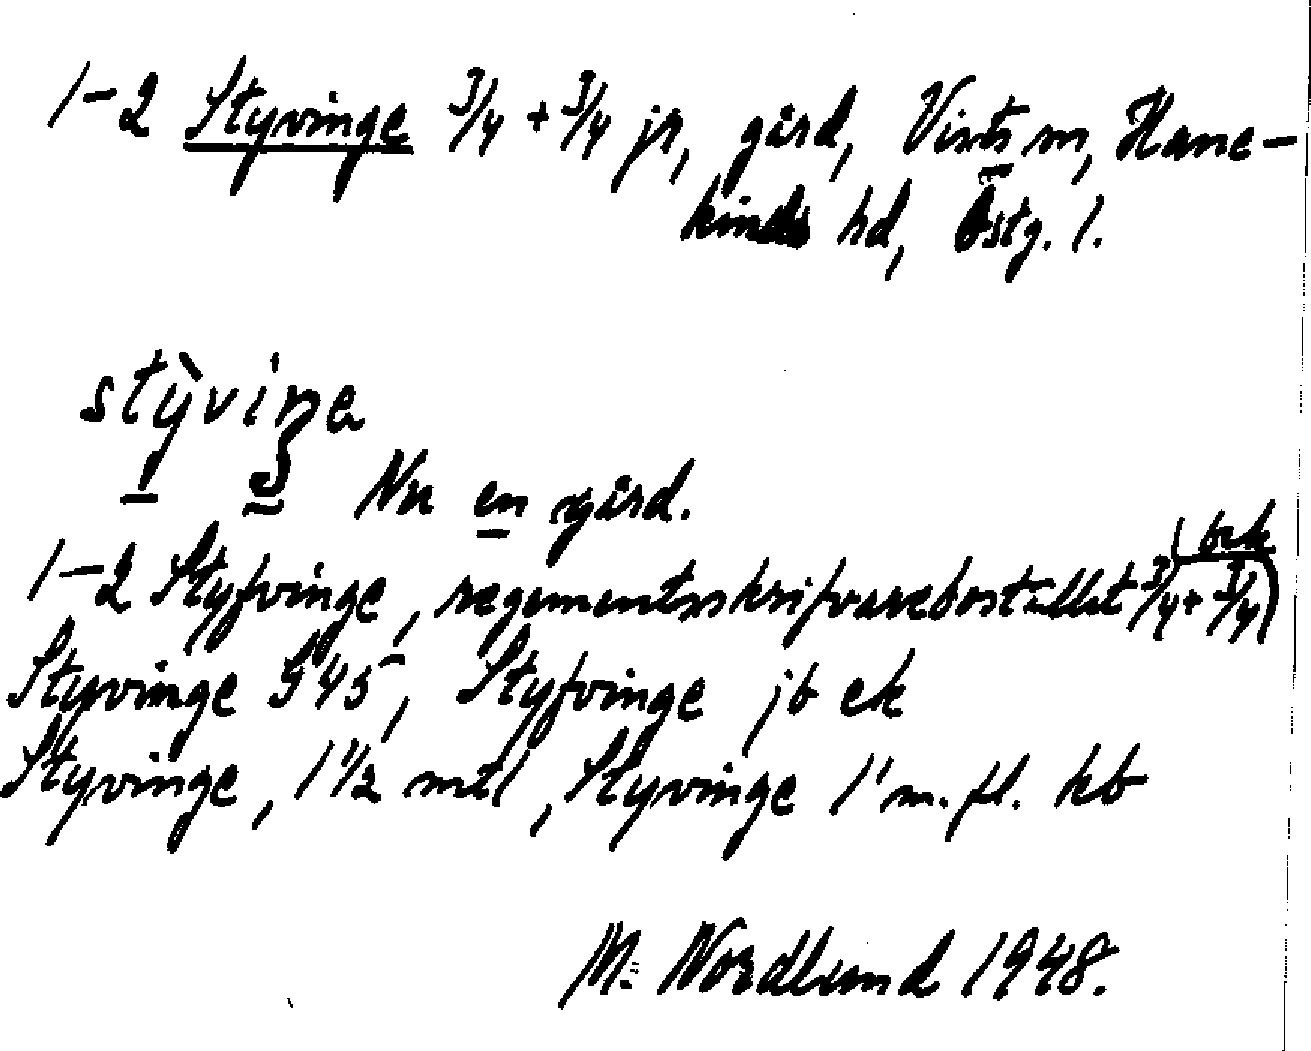 1-2 Styvinge 3/4 + 3/4 jr, gård, Vists sn, Hane-
kinds hd, Östg. l.
stỳviŋa
Nu en gård.
1-2 Styfvinge, regementsskrifvarebostället 3/4 + 3/4) bek
Styvinge G45, Styfvinge jb ek
Styvinge, 1 1/2 mtl, Styvinge 1' m. fl. kb
M. Nordlund 1948.